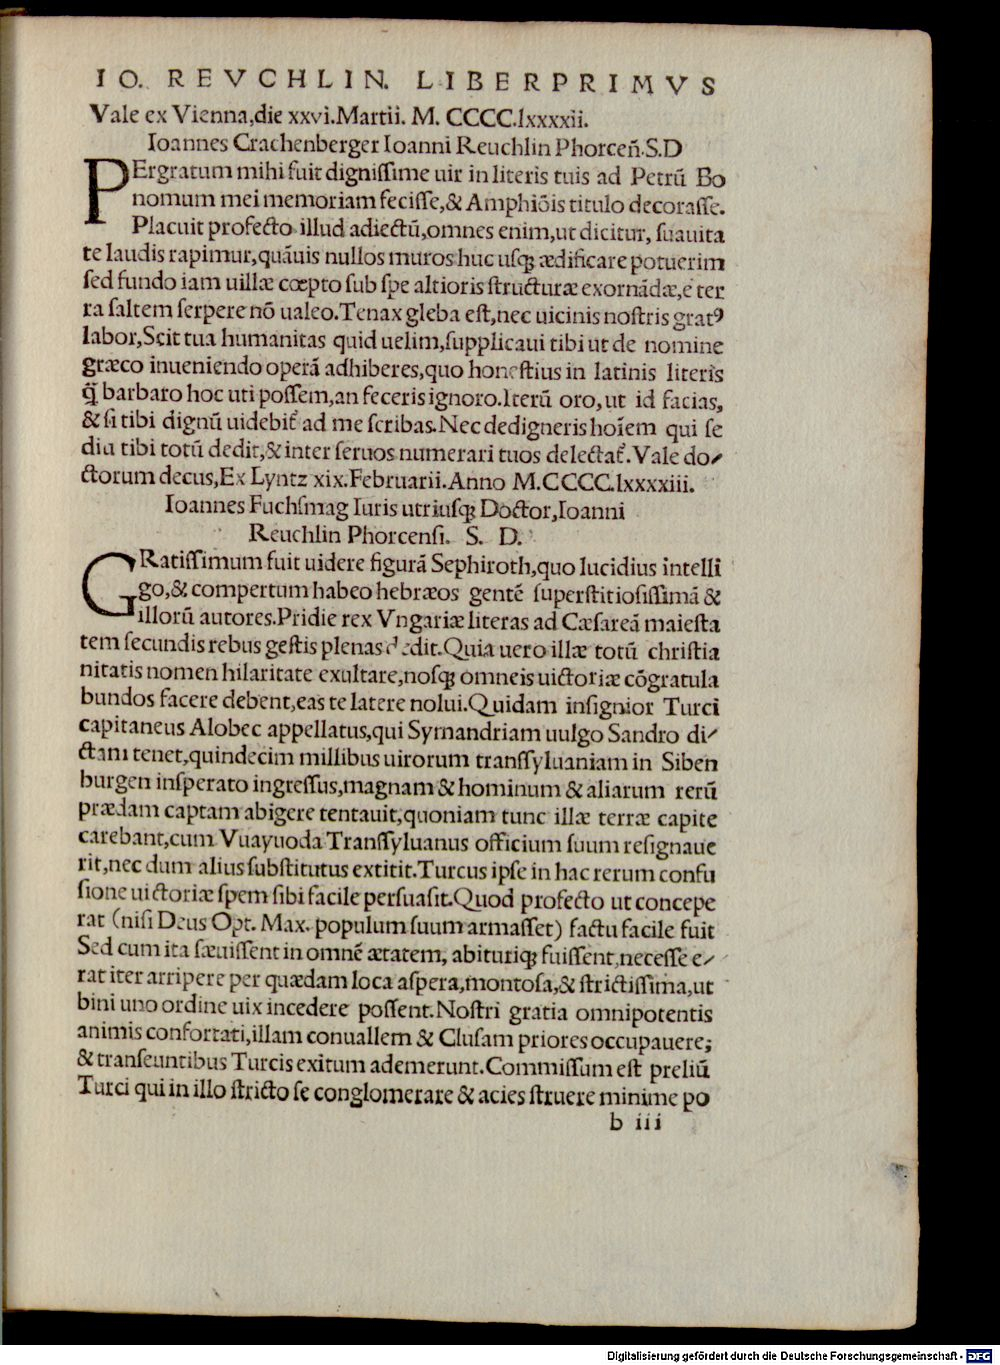 IO. REVCHLIN. LIBER PRIMVS
Vale ex Vienna,die xxvi.Martii. M. CCCC.lxxxxii.
Ioannes Crachenberger Ioanni Reuchlin Phorceñ.S.D
PErgratum mihi fuit digniſſime uir in literis tuis ad Petrū Bo
nomum mei memoriam feciſſe,& Amphiōis titulo decoraſſe.
Placuit profecto illud adiectū,omnes enim,ut dicitur, ſuauita
te laudis rapimur,quāuis nullos muros huc uſqꝫ ædificare potuerim
ſed fundo iam uillæ cœpto ſub ſpe altioris ſtructuræ exornādæ,e ter
ra ſaltem ſerpere nō ualeo.Tenax gleba eſt,nec uicinis noſtris gratꝰ
labor,Scit tua humanitas quid uelim,ſupplicaui tibi ut de nomine
græco inueniendo operā adhiberes,quo honeſtius in latinis literis
q̄ barbaro hoc uti poſſem,an feceris ignoro.Iterū oro,ut id facias,
& ſi tibi dignū uidebit᷑ ad me ſcribas.Nec dedigneris hoīem qui ſe
diu tibi totū dedit,& inter ſeruos numerari tuos delectat᷑.Vale do⸗
ctorum decus,Ex Lyntz xix.Februarii.Anno M.CCCC.lxxxxiii.
Ioannes Fuchſmag Iuris utriuſqꝫ Doctor,Ioanni
Reuchlin Phorcenſi. S. D.
GRatiſſimum fuit uidere figurā Sephiroth,quo lucidius intelli
go,& compertum habeo hebræos gentē ſuperſtitioſiſſimā &
illorū autores.Pridie rex Vngariæ literas ad Cæſareā maieſta
tem ſecundis rebus geſtis plenas dedit.Quia uero illæ totū chriſtia
nitatis nomen hilaritate exultare,noſqꝫ omneis uictoriæ cōgratula
bundos facere debent,eas te latere nolui.Quidam inſignior Turci
capitaneus Alobec appellatus,qui Symandriam uulgo Sandro di⸗
ctam tenet,quindecim millibus uirorum tranſſyluaniam in Siben
burgen inſperato ingreſſus,magnam & hominum & aliarum rerū
prædam captam abigere tentauit,quoniam tunc illæ terræ capite
carebant,cum Vuayuoda Tranſſyluanus officium ſuum reſignaue
rit,nec dum alius ſubſtitutus extitit.Turcus ipſe in hac rerum confu
ſione uictoriæ ſpem ſibi facile perſuaſit.Quod profecto ut concepe
rat (niſi Deus Opt. Max. populum ſuum armaſſet) factu facile fuit
Sed cum ita ſæuiſſent in omnē ætatem, abituriqꝫ fuiſſent,neceſſe e⸗
rat iter arripere per quædam loca aſpera,montoſa,& ſtrictiſſima,ut
bini uno ordine uix incedere poſſent.Noſtri gratia omnipotentis
animis confortati,illam conuallem & Cluſam priores occupauere;
& tranſeuntibus Turcis exitum ademerunt.Commiſſum eſt preliū
Turci qui in illo ſtricto ſe conglomerare & acies ſtruere minime po
b iii
Digitalisierung gefördert durch die Deutsche Forschungsgemeinschaft - DFG